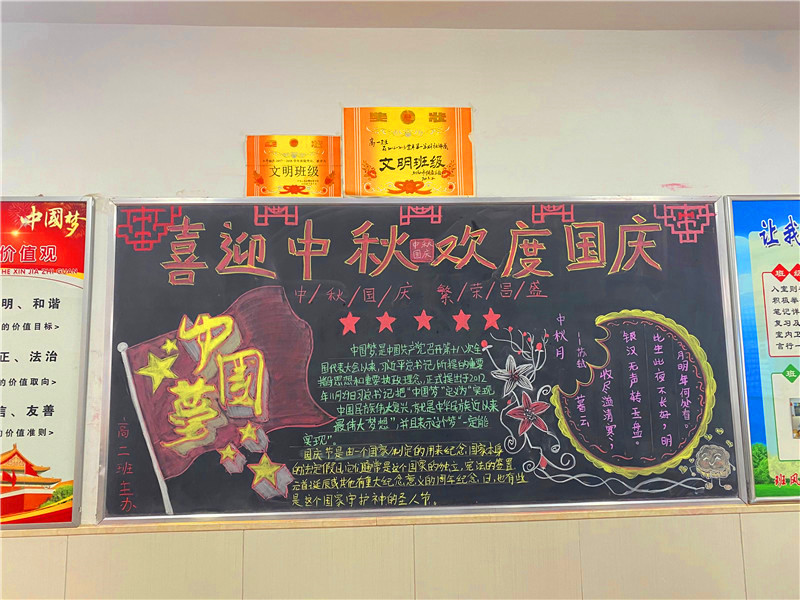 奖状
文明班级
高一班
文明班级
中国梦
价值观
HE XIN JIA ZHI GUAN
明、和谐
的价值目标>
正、法治
的价值取向>
信、友善
的价值准则>
喜迎中秋欢度国庆
中秋
国庆
中/秋/国/庆 繁/荣/昌/盛
中国梦
高二班主办
中国梦是中国共产党召开第十八次全
国代表大会以来，习近平总书记所提出的重要
指导思想和重要执政理念，正式提出于2012
年11月29日习总书记把"中国梦"定义为"实现
中国民族伟大复兴，就是中华民族近代以来
最伟大梦想"，并且表示这个梦"一定能
实现"。
国庆节是由一个国家制定的用来纪念国家本身
的法定假日，它们通常是这个国家的独立、宪法的签署、
元首诞辰或其他有重大纪念意义的周年纪念日，也有些
是这个国家守护神的圣人节。
中秋月
——苏轼
暮云收尽溢清寒，
银汉无声转玉盘。
此生此夜不长好，明
月明年何处看。
让我
班级
入室则
积极举
笔记详
复习及
室内卫
言行一
班
班风